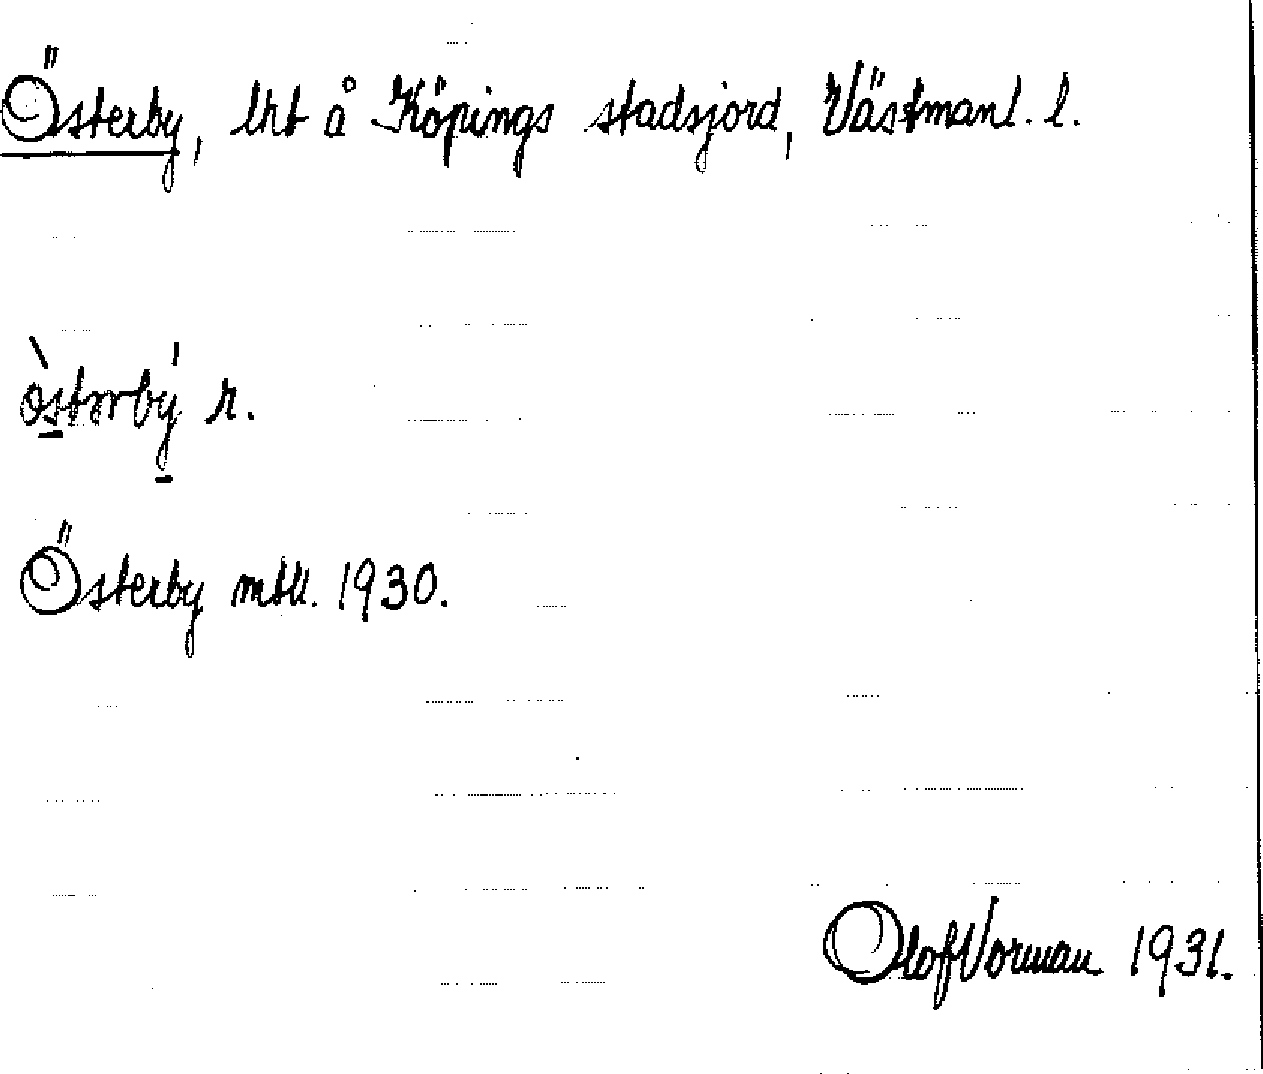 Österby, lht å Köpings stadsjord, Västmanl. l.
òstərbý r.
Österby mtll. 1930.
Olof Vorman 1931.